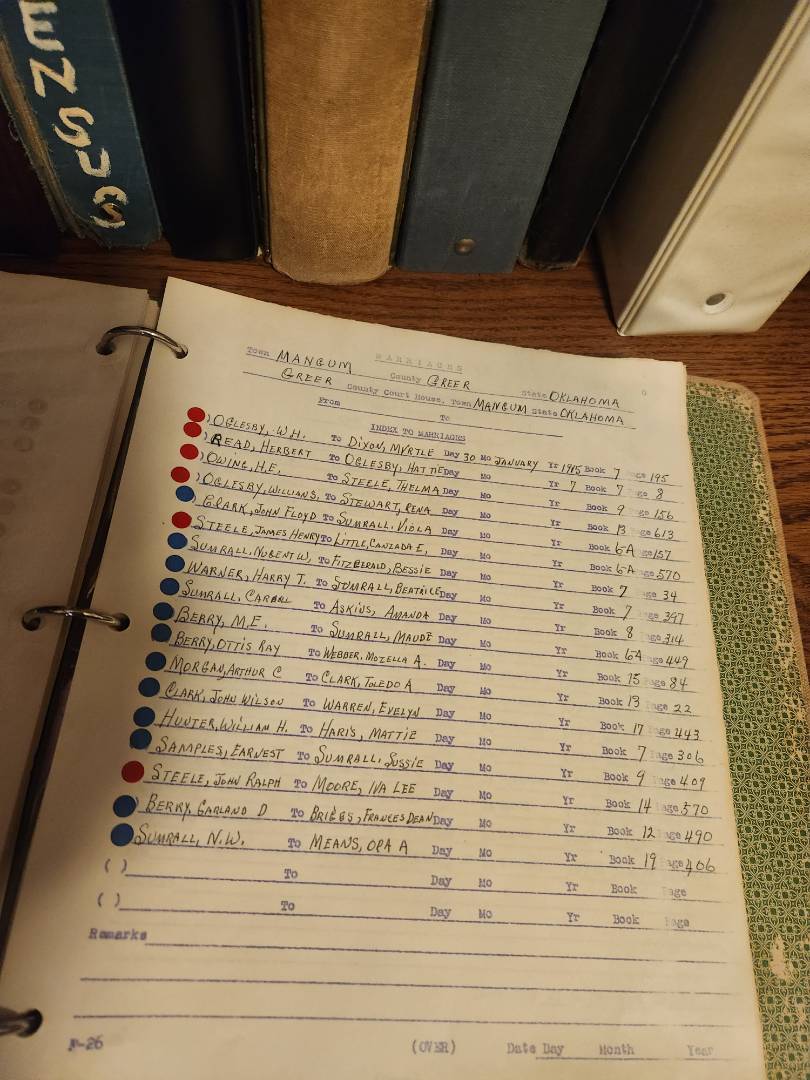 ENSUS
MARRIAGES
Town MANGUM County GREER State OKLAHOMA
GREER County Court House, Town MANGUM State OKLAHOMA
From To
INDEX TO MARRIAGES
) OGLESBY, W.H. To DIXON, MYRTLE Day 30 Mo JANUARY Yr 1915 Book 7 age 195
) READ, HERBERT To OGLESBY, HATTIE Day Mo Yr 7 Book 7 age 8
) OWING, H.E. To STEELE, THELMA Day Mo Yr Book 9 age 156
) OGLESBY, WILLIAN S. To STEWART, RENA Day Mo Yr Book 13 age 613
) CLARK, JOHN FLOYD To SUMRALL, VIOLA Day Mo Yr Book 6A age 157
STEELE, JAMES HENRY To LITTLE, CANZADA E. Day Mo Yr Book 6A age 570
SUMRALL, NUBENT W. To FITZGERALD, BESSIE Day Mo Yr Book 7 age 34
WARNER, HARRY T. To SUMRALL, BEATRICE Day Mo Yr Book 7 age 397
SUMRALL, To ASKINS, AMANDA Day Mo Yr Book 8 age 314
BERRY, M.E. To SUMRALL, MAUDE Day Mo Yr Book 6A age 449
BERRY, OTTIS RAY To WEBBER, MOZELLA A. Day Mo Yr Book 15 age 84
MORGAN, ARTHUR C To CLARK, TOLEDO A Day Mo Yr Book 13 age 22
CLARK, JOHN WILSON To WARREN, EVELYN Day Mo Yr Book 17 age 443
HUNTER, WILLIAM H. To HARIS, MATTIE Day Mo Yr Book 7 Page 306
SAMPLES, EARNEST To SUMRALL, SUSSIE Day Mo Yr Book 9 Page 409
STEELE, JOHN RALPH To MOORE, IVA LEE Day Mo Yr Book 14 Page 570
) BERRY, GARLAND D To BRIGGS, FRANCES DEAN Day Mo Yr Book 12 age 490
SUMRALL, N.W. To MEANS, OPA A Day Mo Yr Book 19 age 406
( ) To Day Mo Yr Book Page
( ) To Day Mo Yr Book Page
Remarks
F-26 (OVER) Date Day Month Year